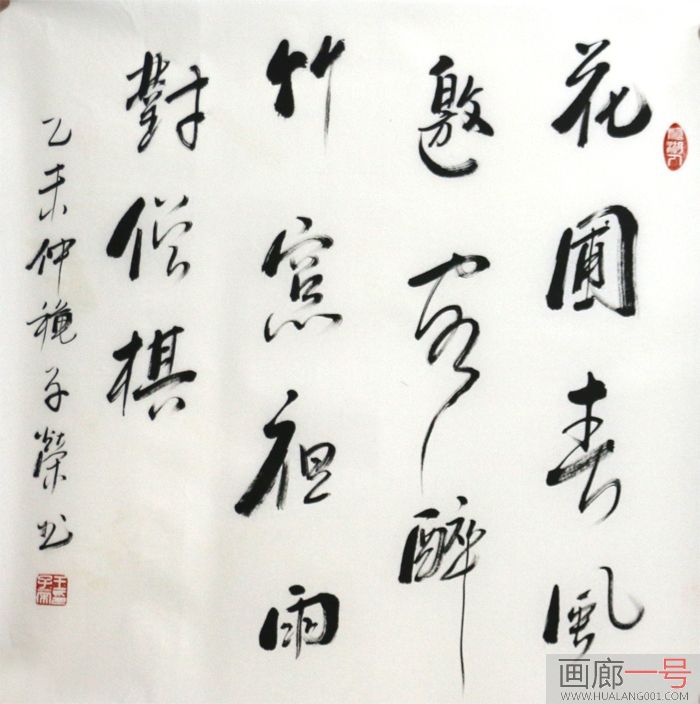 花圃春風
邀客醉
竹窓祖雨
對僧棋
乙未仲穐子榮书
画廊一号
WWW.HUALANG001.COM